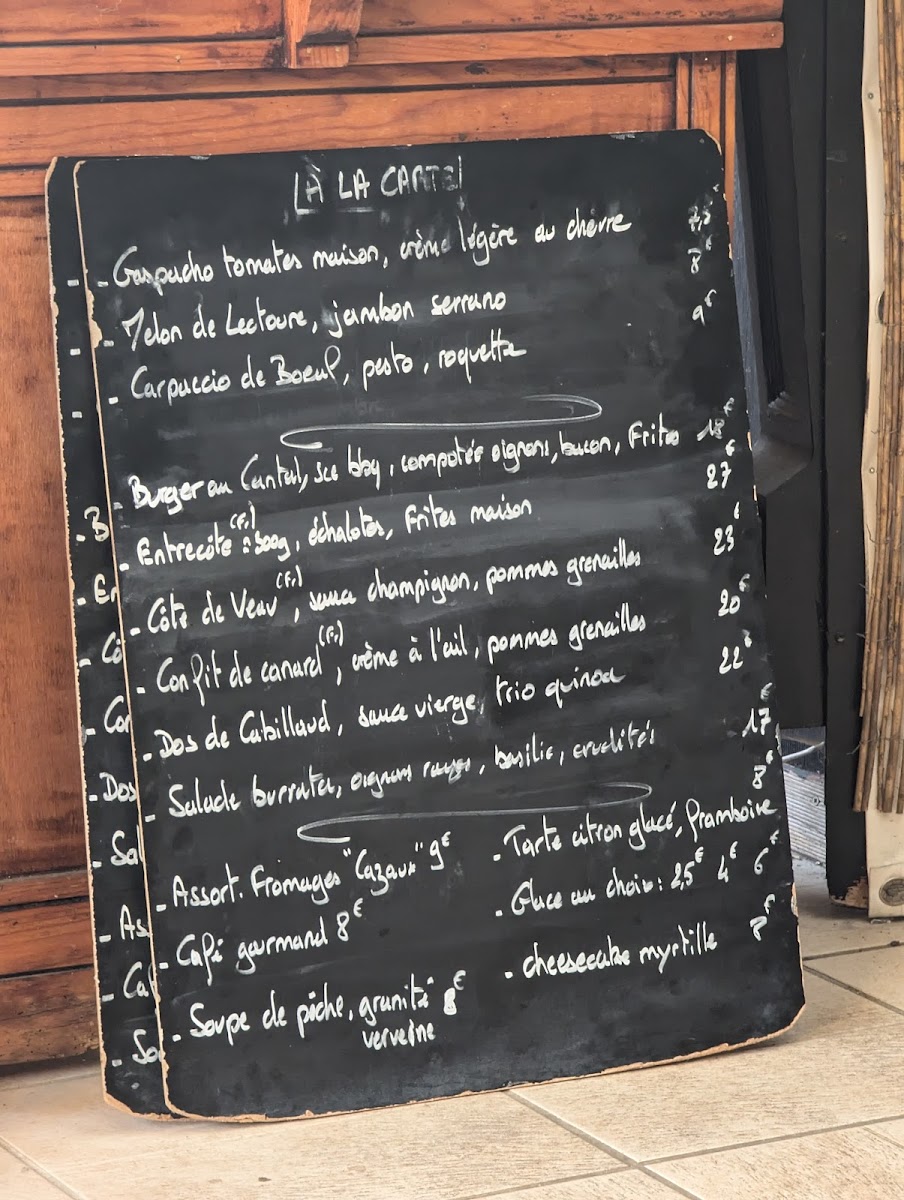 À LA CARTE
- Gaspacho tomates maison, crème légère au chèvre 7,5€
- Melon de Lectoure, jambon serrano 8€
- Carpaccio de Boeuf, pesto, roquette 9€
- Burger au Cantal, sce bbq, compotée oignons, bacon, Frites 18€
- Entrecôte (Fr) : 300g, échalotes, Frites maison 27€
- Côte de Veau (Fr), sauce champignon, pommes grenailles 23€
- Confit de canard (Fr), crème à l'ail, pommes grenailles 20€
- Dos de Cabillaud, sauce vierge, trio quinoa 22€
- Salade burrata, oignons rouges, basilic, crudités 17€
- Assort. Fromages "Cazaux" 9€
- Café gourmand 8€
- Soupe de pêche, granité 8€
verveine
- Tarte citron glacé, framboise 8€
- Glace au choix : 2,5€ 4€ 6€
- cheesecake myrtille €
- B
- En
- Cô
- Co
- Dos
- Sal
- As
- Ca
- So